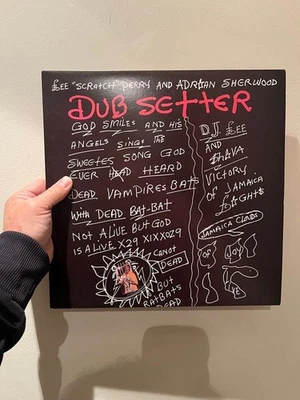 LEE "SCRATCH" PERRY AND ADRIAN SHERWOOD
DUB SETTER
GOD SMILES AND HIS
ANGELS SINGS THE
SWEETES SONG GOD
EVER HEAD HEARD
DEAD VAMPIRES BATS
WITH DEAD BAT-BAT
NOT ALIVE BUT GOD
IS ALIVE X29 XIXX029
CANOT
DEAD
BUT
RATBATS
DEAD
D.J. LEE
AND
VICTORY
OF JAMAICA
LIGHTS
JAMAICA CLOBS
OF
JOY